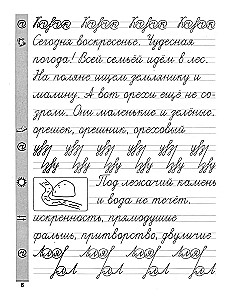 Сегодня воскресенье. Чудесная
погода! Всей семьёй идём в лес.
На поляне ищем землянику и
малину. А вот орехи ещё не со-
зрели. Они маленькие и зелёные.
орешек, орешник, ореховый
Под лежачий камень
и вода не течёт.
искренность, прямодушие
фальшь, притворство, двуличие
6